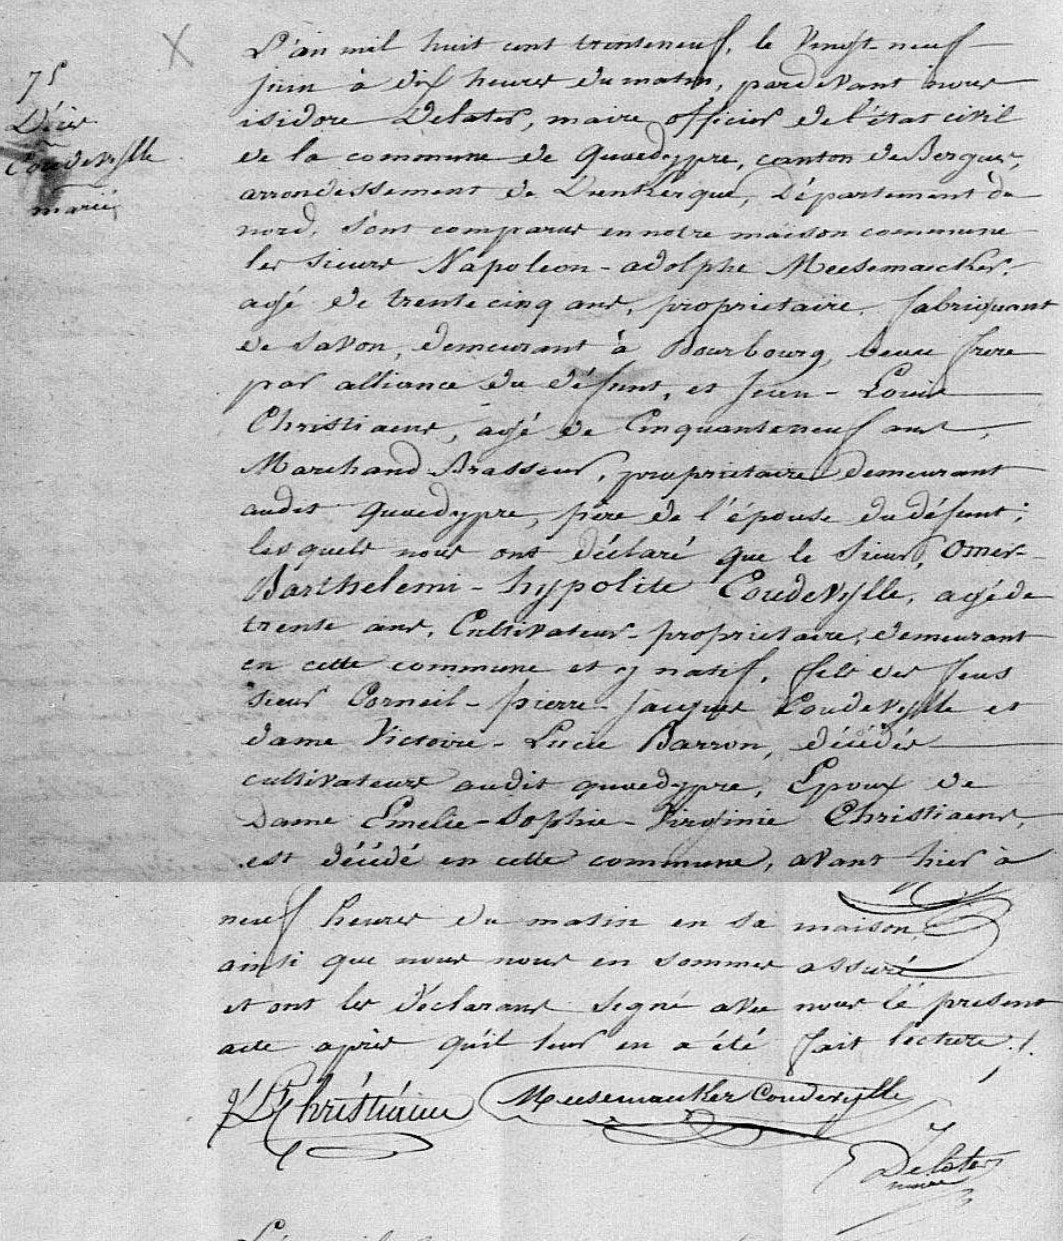 75
Décès
Coudevylle
marié
L'an mil huit cent trenteneuf, le vingt-neuf
juin à dix heures du matin, pardevant nous
isidore Delater, maire officier de l'état civil
de la commune de Quaedypre, canton de Bergues,
arrondissement de Dunkerque, Département du
nord, sont comparus en notre maison commune
les sieurs Napoleon-adolphe Meesemaecker,
agé de trente cinq ans, propriétaire, fabriquant
de savon, demeurant à Bourbourg, beau frere
par alliance du défunt, et Jean-Louis
Christiaens, agé de Cinquanteneuf ans,
Marchand Brasseur, propriétaire demeurant
audit quaedypre, père de l'épouse du défunt;
lesquels nous ont déclaré que le sieur, Omer-
Barthelemi-hypolite Coudevylle, agé de
trente ans, Cultivateur-propriétaire, demeurant
en cette commune et y natif, fils des feus
sieur Corneil-pierre-Jacques Coudevylle et
dame Victoire-Lucie Barron, décédés
cultivateurs audit quaedypre, Epoux de
Dame Emelie-Sophie-Virginie Christiaens,
est décédé en cette commune, avant hier à
neuf heures du matin en sa maison,
ainsi que nous nous en sommes assuré
et ont les déclarans signé avec nous le présent
acte après qu'il leur en a été fait lecture./.
J L Christiaens
Meesemaecker Coudevylle
Delater
maire